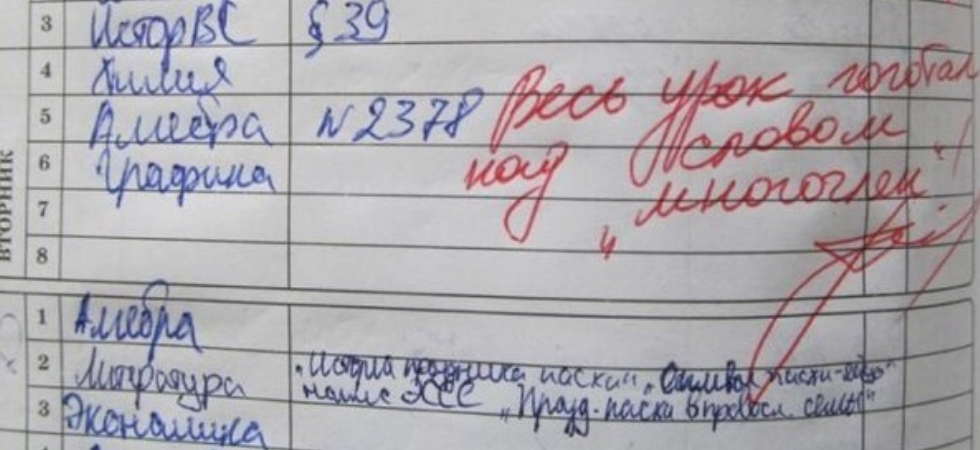 3 ИсторВС § 39
4 Химия
5 Алгебра N 2378
6 Графика
7
8
ВТОРНИК
Весь урок гоготал
над словом
„многочлен“
1 Алгебра
2 Литература „История праздника пасхи“, „Символ пасхи-яйцо“
3 Экономика напис ЭССЕ „Празд. пасхи в правосл. семье“